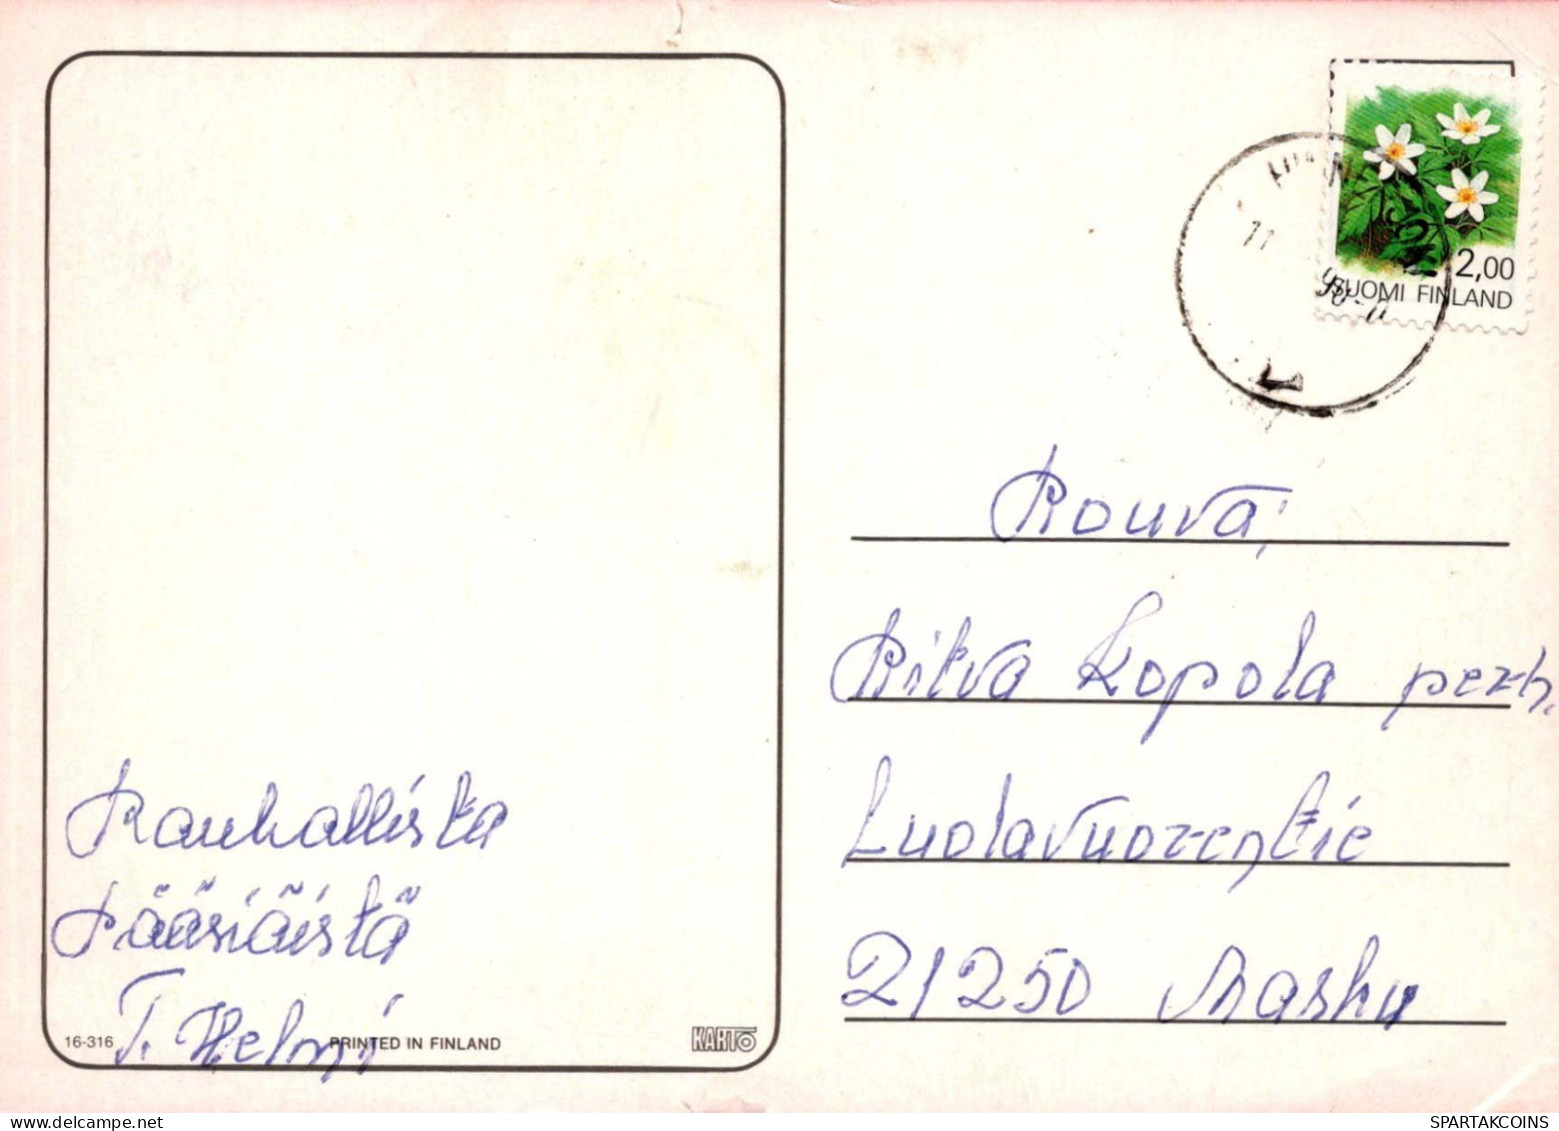 2,00
SUOMI FINLAND
11
90-11
Rouva,
Ritva Kopola perh.
Luolavuorentie
21250 Masku
Rauhallista
Pääsiäistä
T. Helmi
16-316 PRINTED IN FINLAND KARTO
SPARTAKCOINS